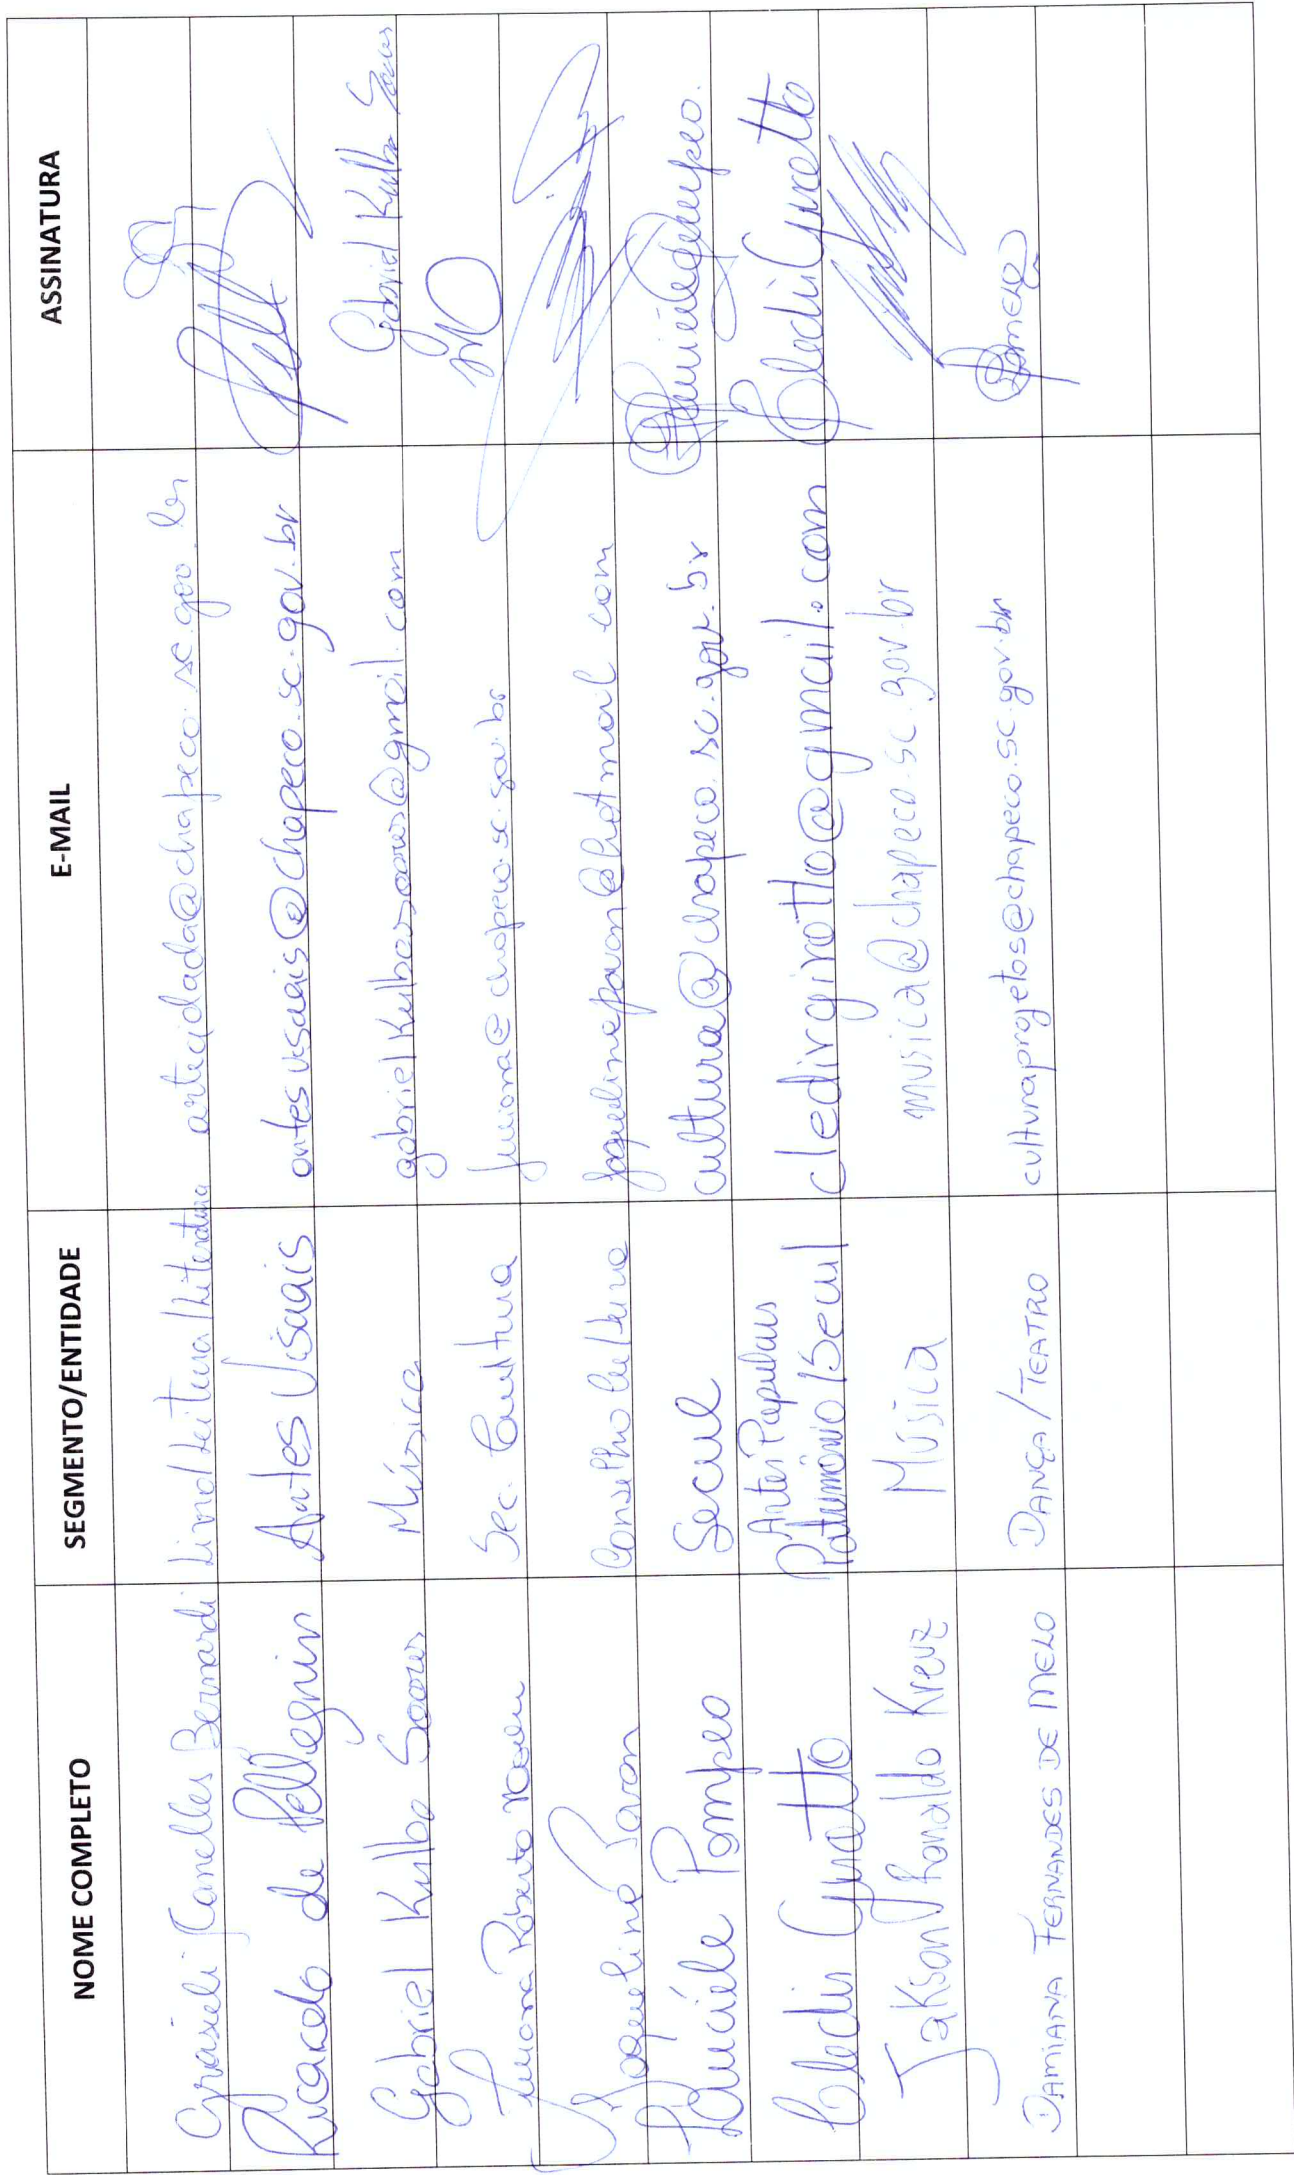 NOME COMPLETO SEGMENTO/ENTIDADE E-MAIL ASSINATURA
Grasieli Canelles Bernardi Livro/Leitura/Literatura artecidada@chapeco.sc.gov.br
Ricardo de Pellegrin Artes Visuais artesvisuais@chapeco.sc.gov.br
Gabriel Kulba Soares Música gabrielkulbasoares@gmail.com Gabriel Kulba Soares
Roberto Sec. Cultura @chapeco.sc.gov.br
Jaqueline Pavan Conselho Cultura jaquelinepavan@hotmail.com
Lauciele Pompeo Secul cultura@chapeco.sc.gov.br
Artes Populares
Cledir Girotto Patrimônio/Secul cledirgirotto@gmail.com Cledir Girotto
Jakson Ronaldo Kreuz Música musica@chapeco.sc.gov.br
DAMIANA FERNANDES DE MELO DANÇA/TEATRO culturaprojetos@chapeco.sc.gov.br